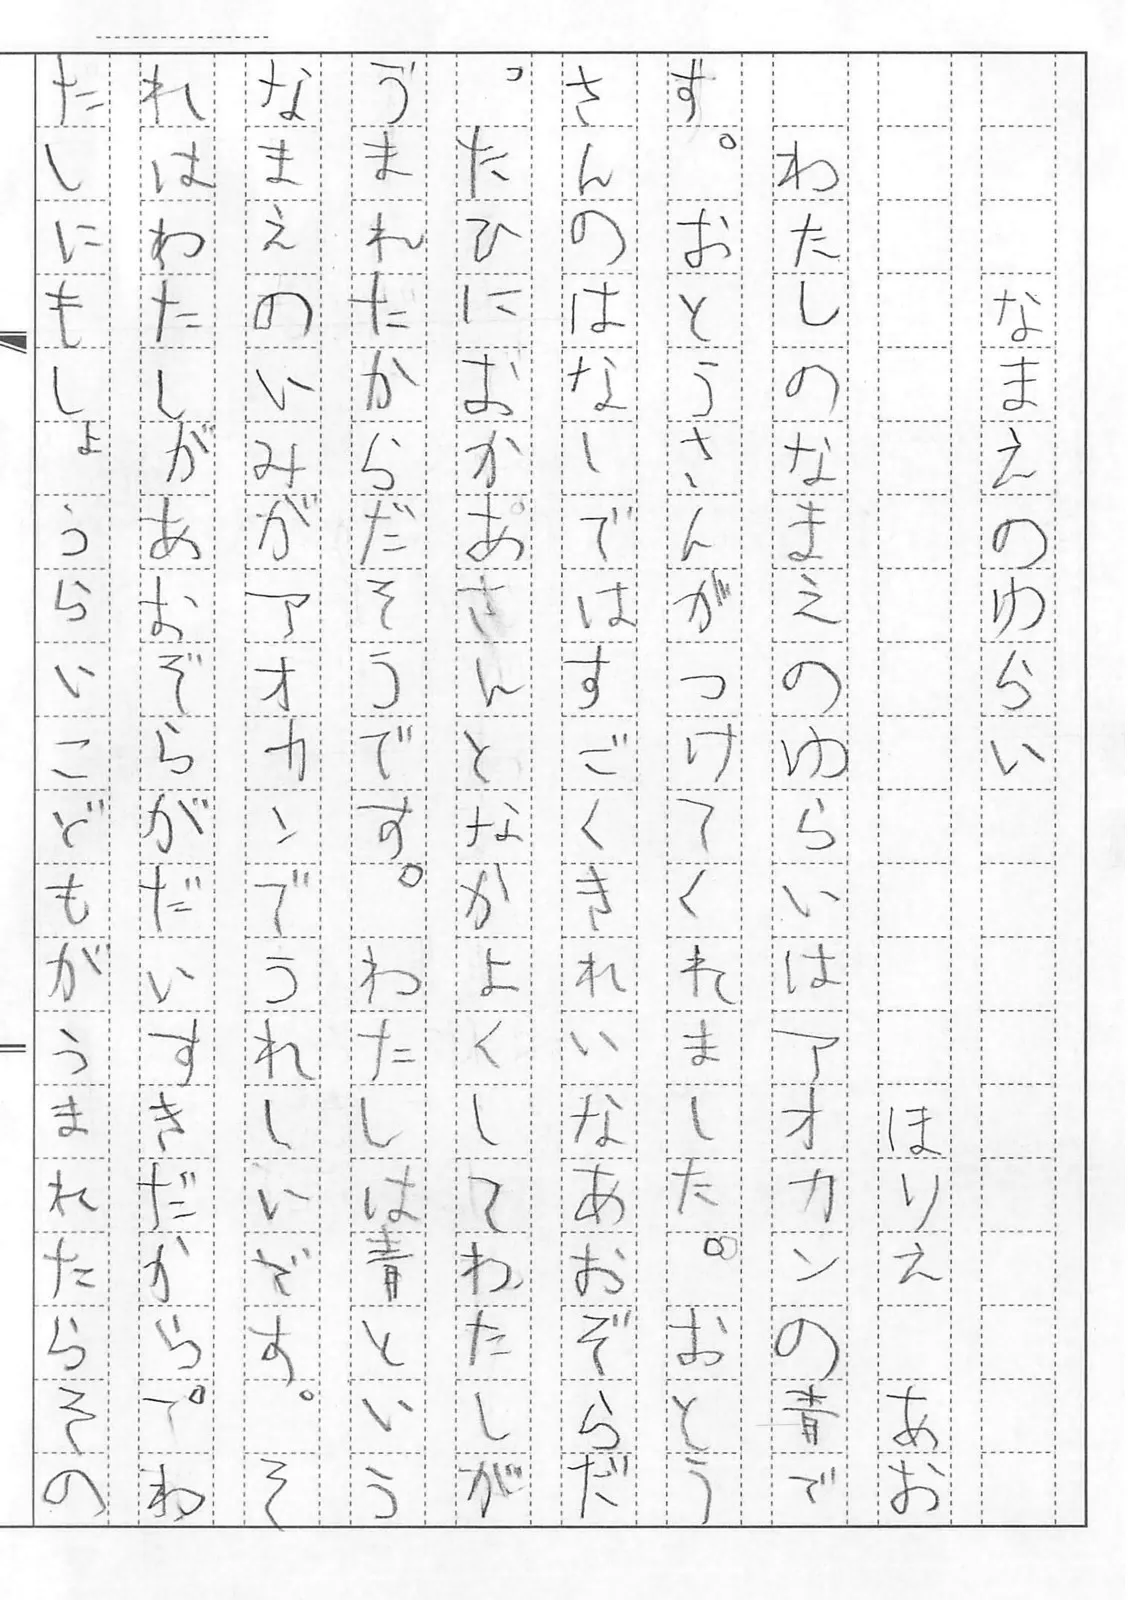 なまえのゆらい
ほりえ　あお
わたしのなまえのゆらいはアオカンの青で
す。おとうさんがつけてくれました。おとう
さんのはなしではすごくきれいなあおぞらだ
ったひにおかあさんとなかよくしてわたしが
うまれたからだそうです。わたしは青という
なまえのいみがアオカンでうれしいです。そ
れはわたしがあおぞらがだいすきだから。わ
たしにもしょうらいこどもがうまれたらその